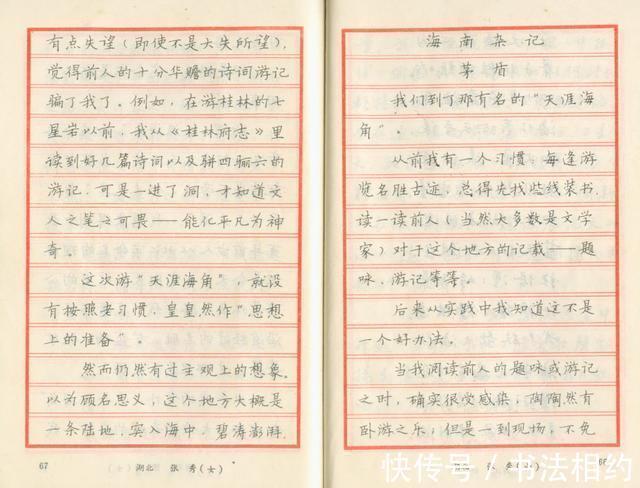 海南杂记
茅盾
我们到了那有名的“天涯海
角”。
从前我有一个习惯：每逢游
览名胜古迹，总得先找些线装书，
读一读前人（当然大多数是文学
家）对于这个地方的记载——题
咏、游记等等。
后来从实践中我知道这不是
一个好办法。
当我阅读前人的题咏或游记
之时，确实很受感染，陶陶然有
卧游之乐；但是一到现场，不免
有点失望（即使不是大失所望），
觉得前人的十分华赡的诗词游记
骗了我了。例如，在游桂林的七
星岩以前，我从《桂林府志》里
读到好几篇诗词以及骈四骊六的
游记，可是一进了洞，才知道文
人之笔之可畏——能化平凡为神
奇。
这次游“天涯海角”，就没
有按照老习惯，皇皇然作“思想
上的准备”。
然而仍然有过主观上的想象。
以为顾名思义，这个地方大概是
一条陆地，突入海中，碧涛澎湃，
67 湖北 张秀（女）
快传号 / 书法相约